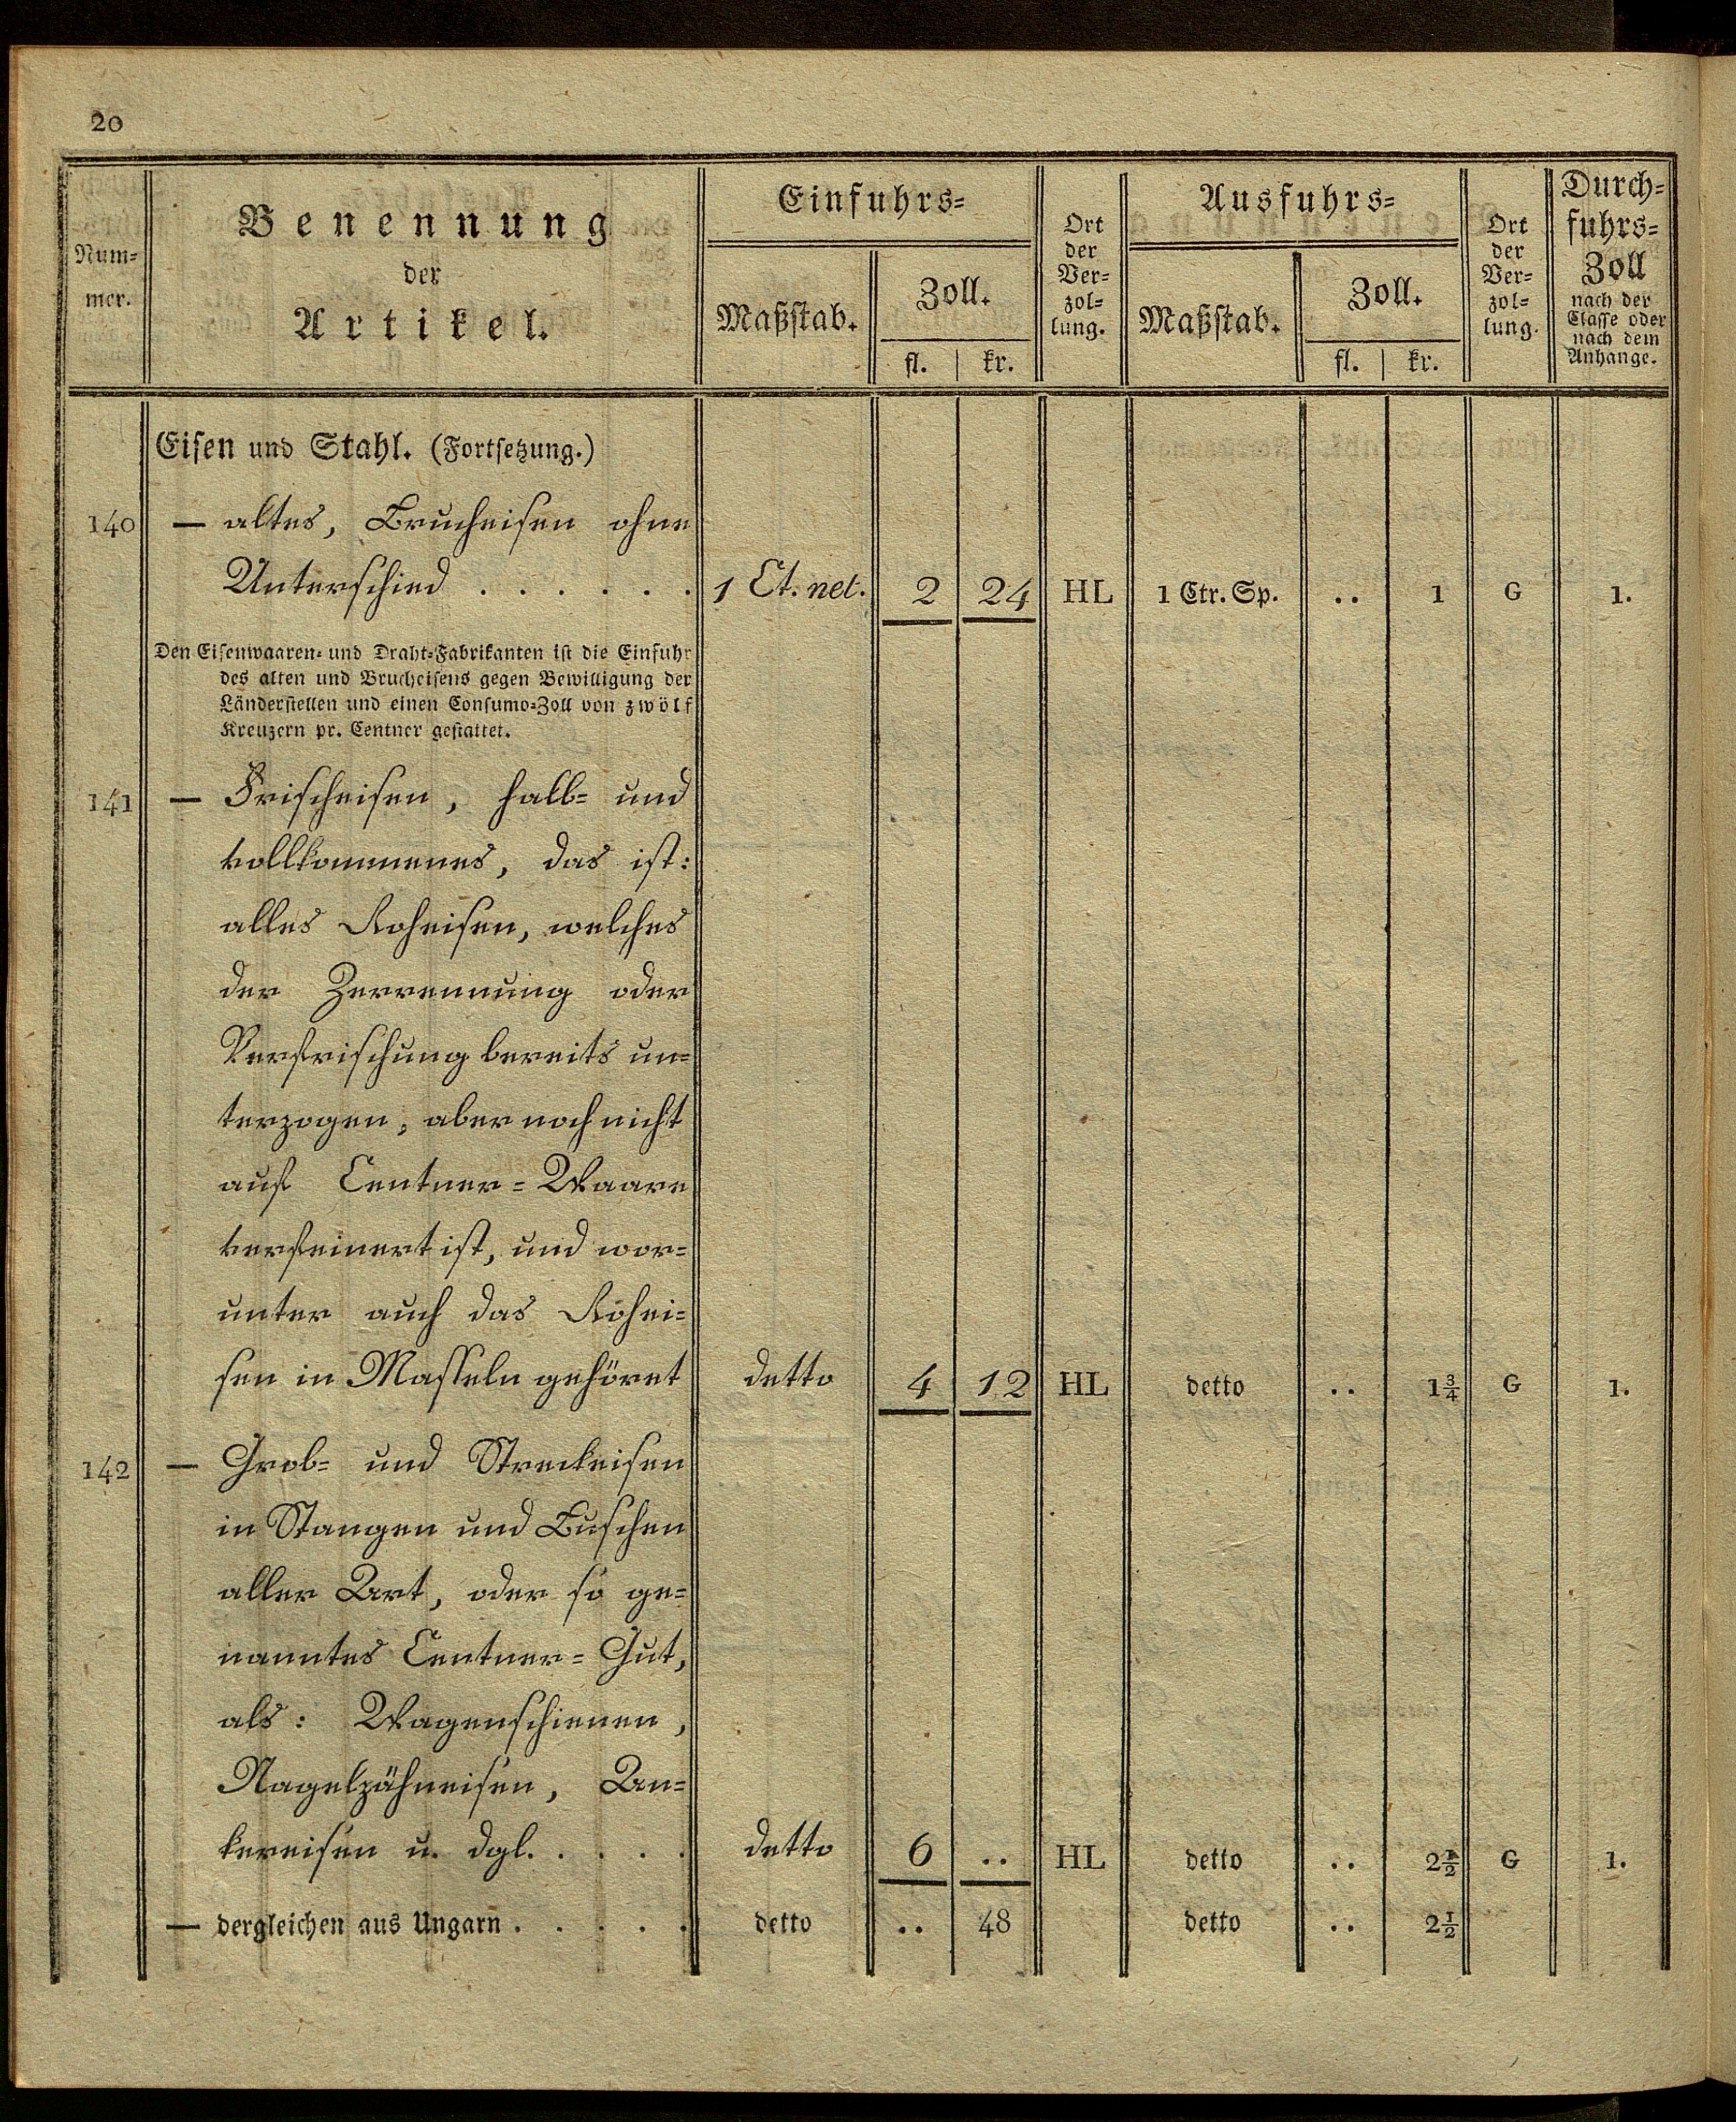 20
Num-
mer.
Benennung
der
Artikel.
Einfuhrs-
Maßstab.
Zoll.
fl. | kr.
Ort
der
Ver-
zol-
lung.
Ausfuhrs-
Maßstab.
Zoll.
fl. | kr.
Ort
der
Ver-
zol-
lung.
Durch-
fuhrs-
Zoll
nach der
Classe oder
nach dem
Anhange.
Eisen und Stahl. (Fortsetzung.)
140 — altes, Brucheisen ohne
Unterschied . . . . . . 1 Ct. net. 2 24 HL 1 Ctr. Sp. .. 1 G 1.
Den Eisenwaaren- und Draht-Fabrikanten ist die Einfuhr
des alten und Brucheisens gegen Bewilligung der
Länderstellen und einen Consumo-Zoll von zwölf
Kreuzern pr. Centner gestattet.
141 — Frischeisen, halb- und
vollkommenes, das ist:
alles Roheisen, welches
der Zerrennung oder
Verfrischung bereits un-
terzogen, aber noch nicht
auf Centner-Waare
verfeinert ist, und wor-
unter auch das Rohei-
sen in Masseln gehöret detto 4 12 HL detto .. 1¾ G 1.
142 — Grob- und Streckeisen
in Stangen und Buschen
aller Art, oder so ge-
nanntes Centner-Gut,
als: Wagenschienen,
Nagelzähneisen, An-
kereisen u. dgl. . . . . detto 6 .. HL detto .. 2½ G 1.
— dergleichen aus Ungarn . . . . . detto .. 48 detto .. 2½